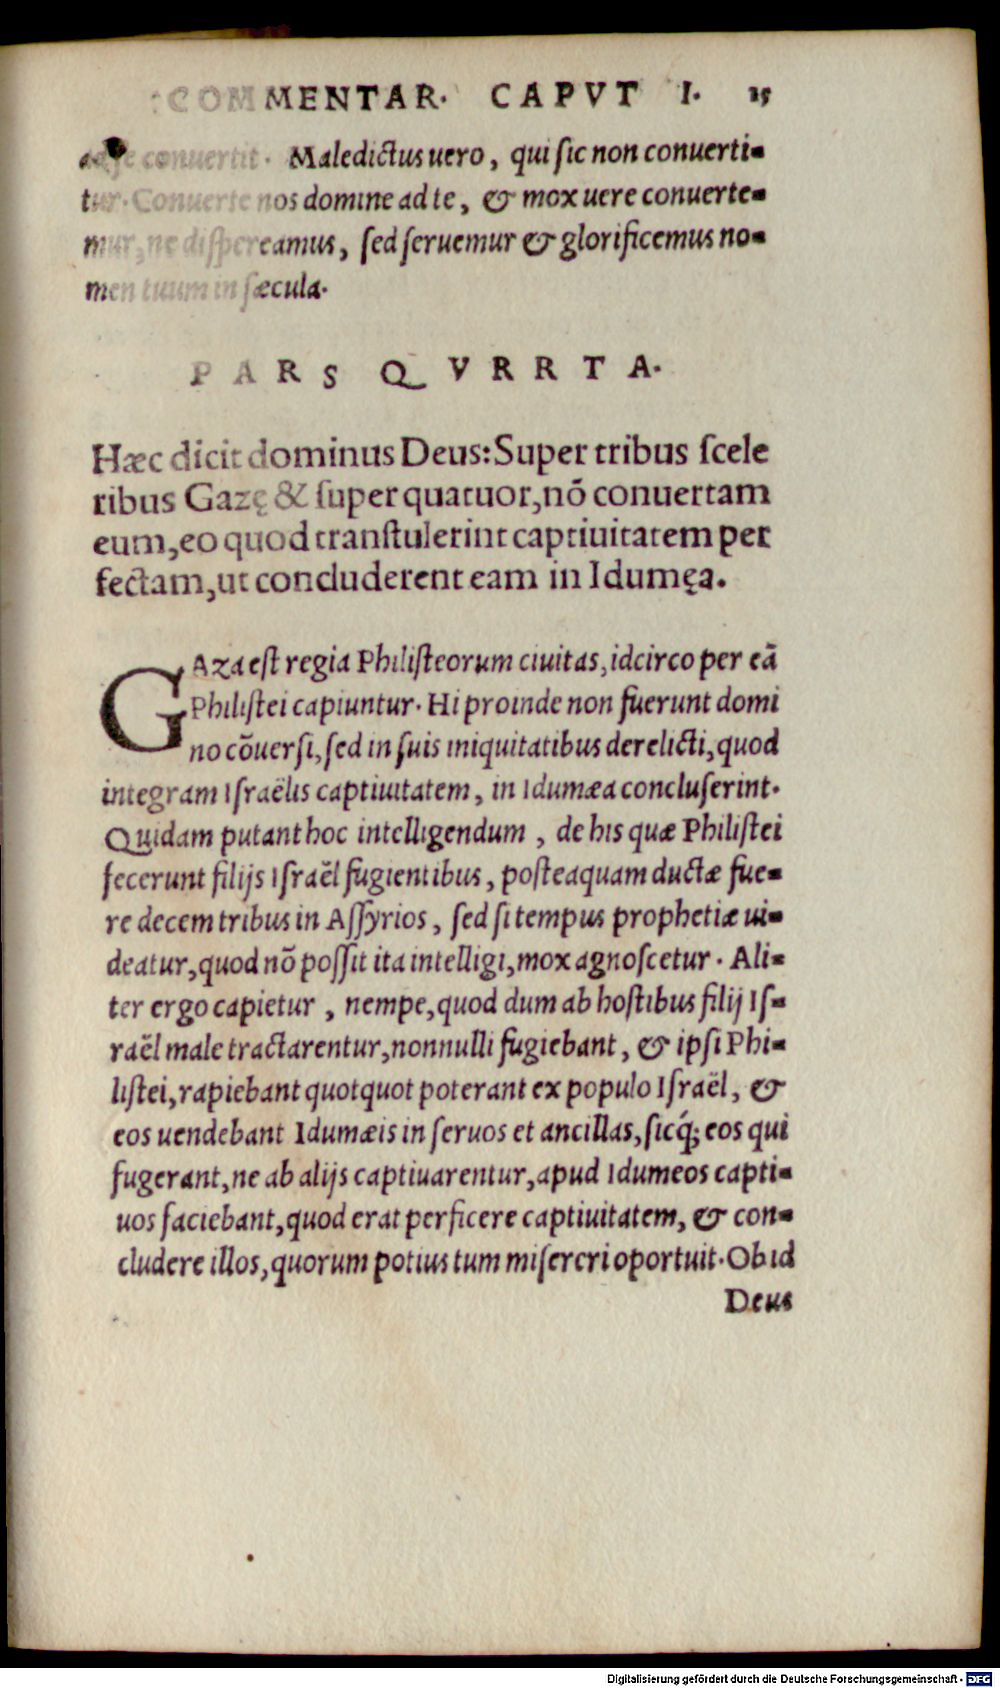 COMMENTAR. CAPVT I. 15
ad se conuertit. Maledictus uero, qui sic non conuerti-
tur. Conuerte nos domine ad te, & mox uere conuerte-
mur, ne dispereamus, sed seruemur & glorificemus no-
men tuum in sæcula.
PARS QVRRTA.
Hæc dicit dominus Deus: Super tribus scele
ribus Gazę & super quatuor, nõ conuertam
eum, eo quod transtulerint captiuitatem per
fectam, ut concluderent eam in Idumęa.
GAza est regia Philisteorum ciuitas, idcirco per eã
Philistei capiuntur. Hi proinde non fuerunt domi
no cõuersi, sed in suis iniquitatibus derelicti, quod
integram Israëlis captiuitatem, in Idumæa concluserint.
Quidam putant hoc intelligendum, de his quæ Philistei
fecerunt filijs Israël fugientibus, posteaquam ductæ fue-
re decem tribus in Assyrios, sed si tempus prophetiæ ui-
deatur, quod nõ possit ita intelligi, mox agnoscetur. Ali-
ter ergo capietur, nempe, quod dum ab hostibus filij Is-
raël male tractarentur, nonnulli fugiebant, & ipsi Phi-
listei, rapiebant quotquot poterant ex populo Israël, &
eos uendebant Idumæis in seruos et ancillas, sicq́; eos qui
fugerant, ne ab alijs captiuarentur, apud Idumeos capti-
uos faciebant, quod erat perficere captiuitatem, & con-
cludere illos, quorum potius tum misereri oportuit. Ob id
Deus
Digitalisierung gefördert durch die Deutsche Forschungsgemeinschaft - DFG